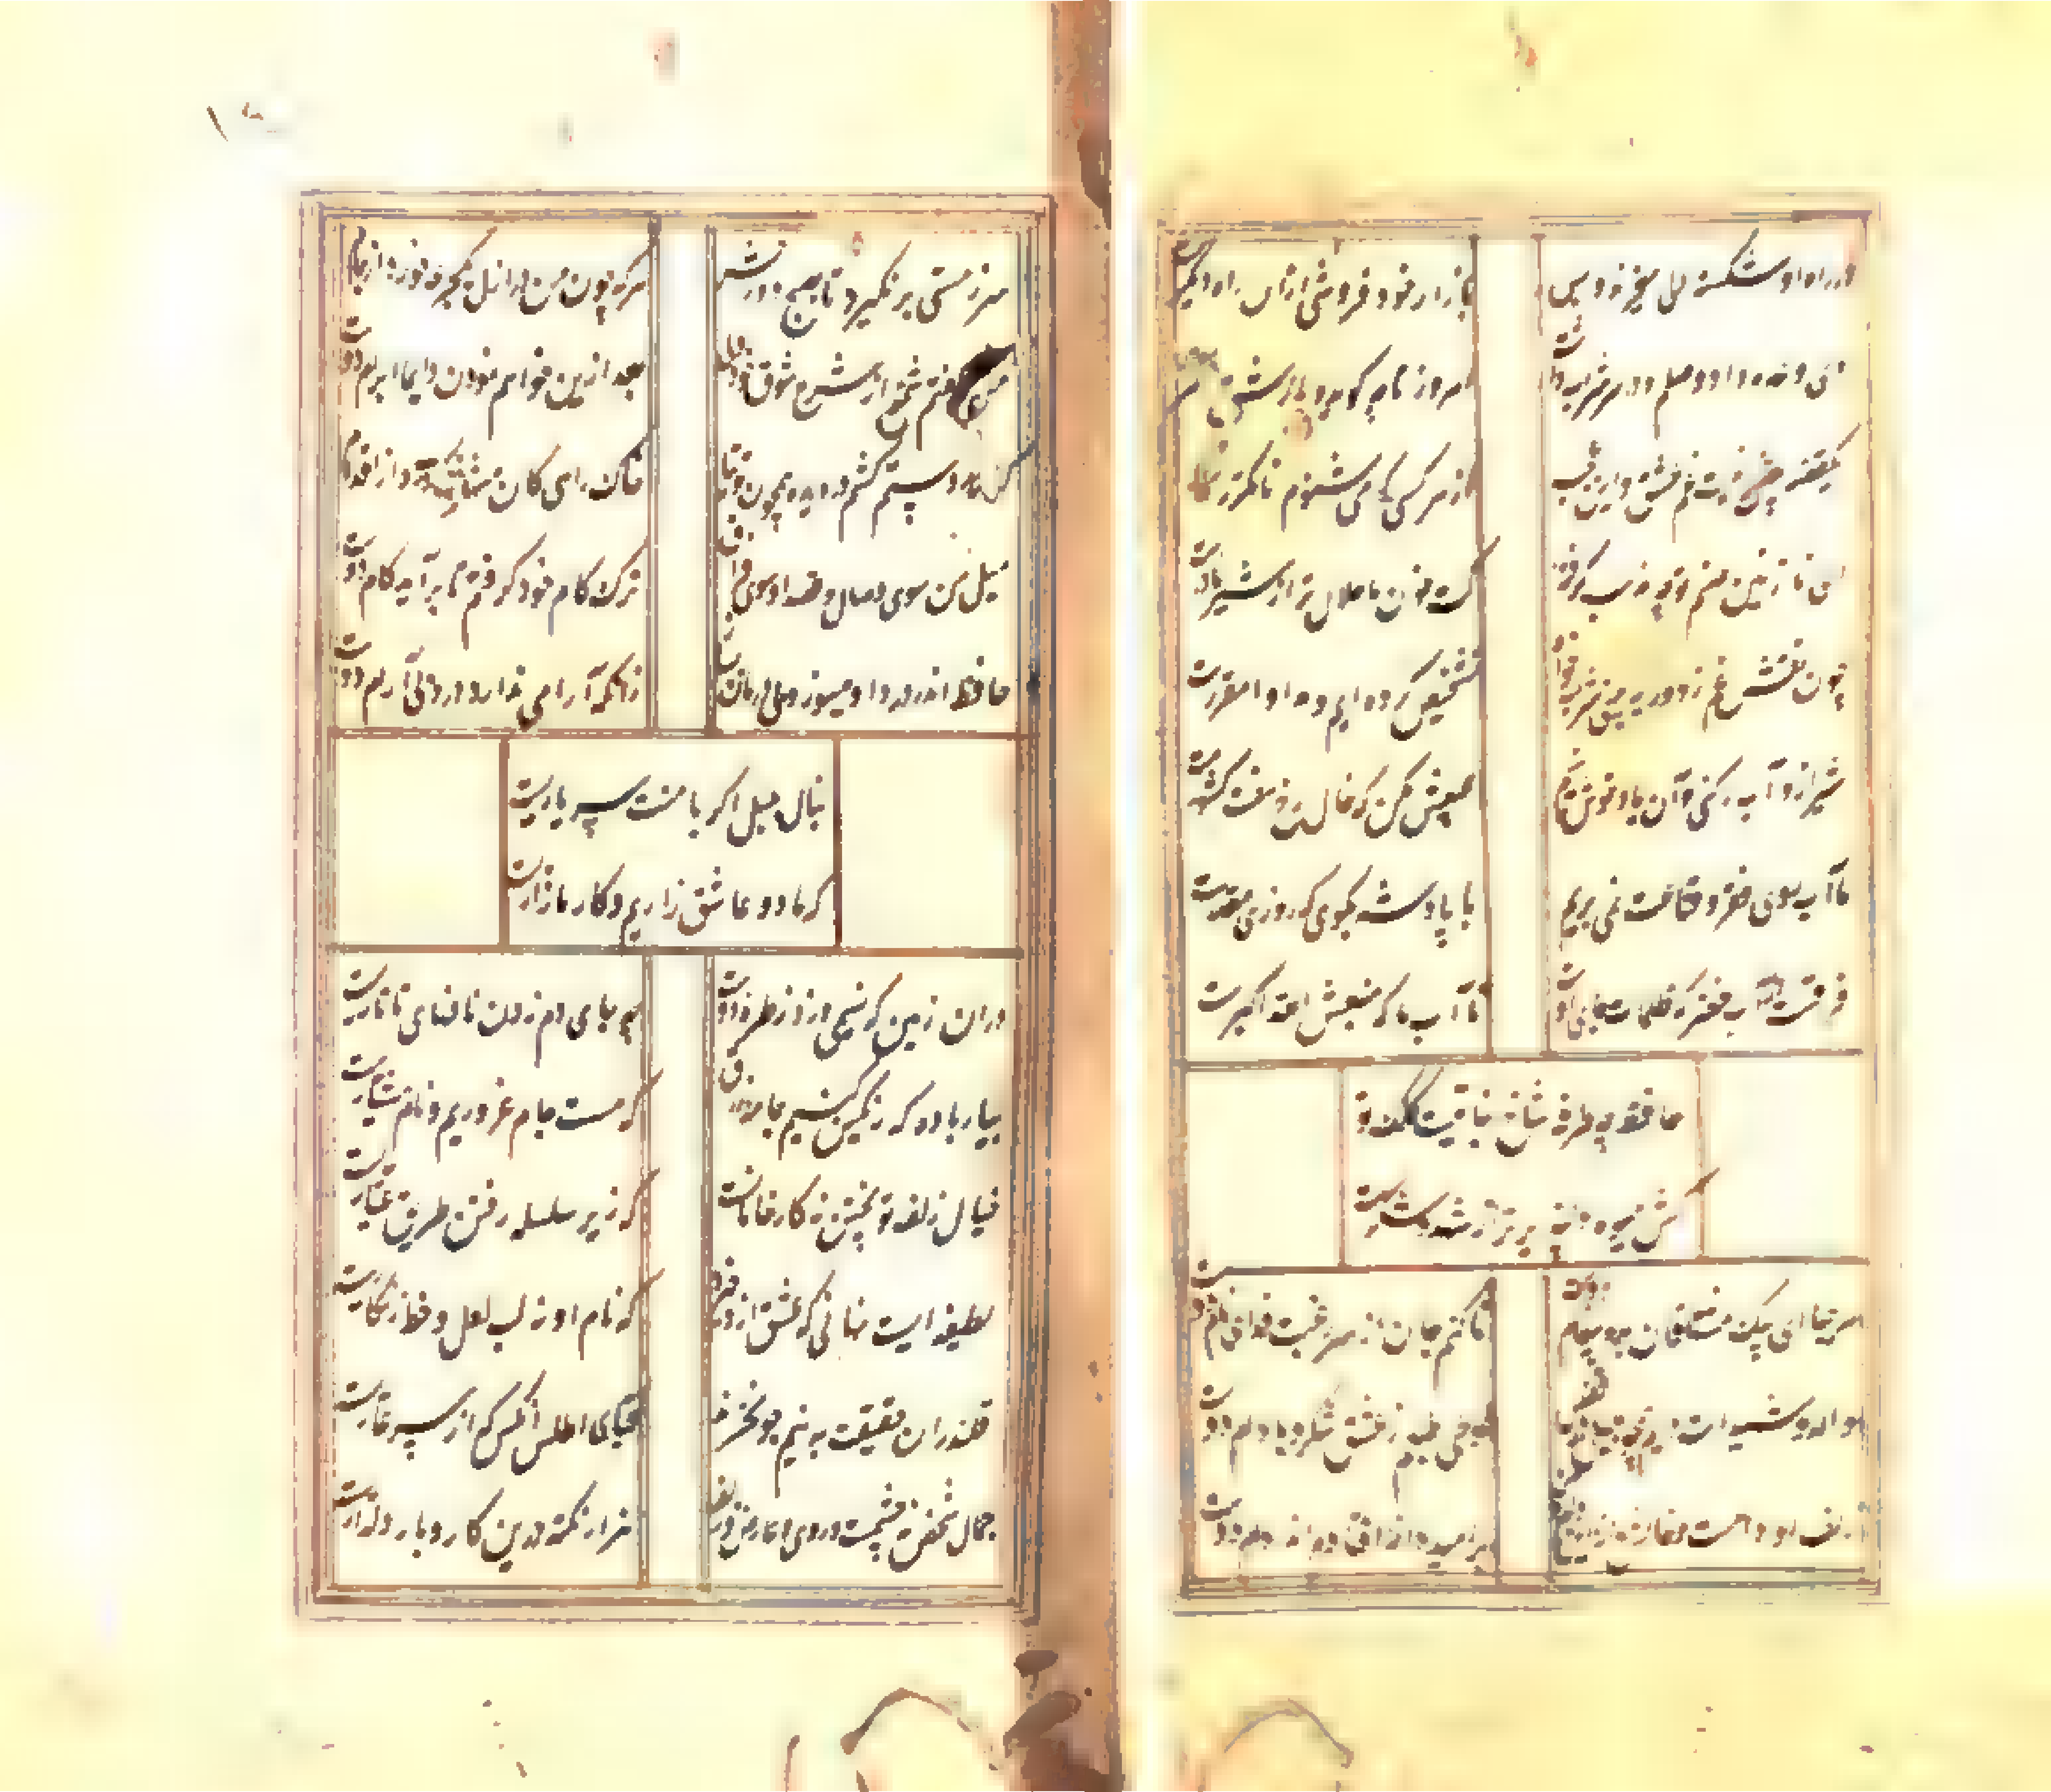 در راه او شکسته دلی می‌خرند و بس
بازار خود فروشی ازان راه دیگرست
دی وعده داد وصلم و در سر شراب داشت
امروز تا چه گوید و بازش چه در سرست
یک قصه بیش نیست غم عشق و این عجب
از هر کسی که می‌شنوم نامکررست
ای نازنین صنم تو چه مذهب گرفته
کت خون ما حلال تر از شیر مادرست
چون نقش غم ز دور به بینی شراب خواه
تشخیص کرده ایم و مداوا مقررست
شیراز و آب رکنی و آن باد خوش نسیم
عیبش مکن که خال رخ هفت کشورست
ما آب روی فقر و قناعت نمی بریم
با پادشه بگوی که روزی مقدرست
فرقست ز آب خضر که ظلمات جای اوست
تا آب ما که منبعش الله اکبرست
حافظ چه طرفه شاخ نباتیست کلک تو
کش میوه دلپذیر تر از شهد و شکرست
مرحبا ای پیک مشتاقان بده پیغام دوست
تا کنم جان از سر رغبت فدای نام دوست
واله و شیداست دایم همچو بلبل در قفس
طوطی طبعم ز عشق شکر و بادام دوست
زلف او دامست و خالش دانه آن دام و من
بر امید دانه افتاده ام در دام دوست
سر ز مستی بر نگیرد تا بصبح روز حشر
هر که چون من در ازل یک جرعه خورد از جام دوست
می نگفتم شمه از شرح شوق خود ولی
بعد ازین خواهم نمودن دایما ابرام دوست
گر دهد دستم کشم در دیده همچون توتیا
خاک راهی کان مشرف گردد از اقدام دوست
میل من سوی وصال و قصد او سوی فراق
ترک کام خود گرفتم تا بر آید کام دوست
حافظ اندر درد او میسوز و بی درمان بساز
زانکه آرامی ندارد درد بی آرام دوست
بنال بلبل اگر با منت سر یاریست
که ما دو عاشق زاریم و کار ما زاریست
دران زمین که نسیمی وزد ز طره دوست
چه جای دم زدن نافهای تاتاریست
بیار باده که رنگین کنیم جامه زرق
که مست جام غروریم و نام هشیاریست
خیال زلف تو پختن نه کار خامانست
که زیر سلسله رفتن طریق عیاریست
لطیفه ایست نهانی که عشق ازو خیزد
که نام او نه لب لعل و خط زنگاریست
قلندران حقیقت به نیم جو نخرند
قبای اطلس آنکس که از هنر عاریست
جمال شخص نه چشمست و روی و عارض و زلف
هزار نکته درین کار و بار دلداریست